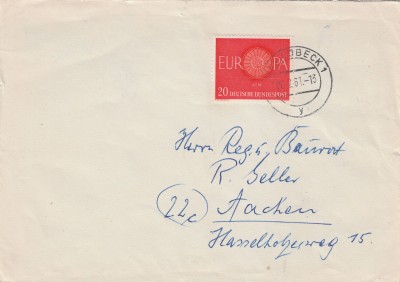 EUROPA
1960
20 DEUTSCHE BUNDESPOST
LÜBECK 1
61.-13
y
Herrn Reg. u. Baurat
R. Geller
(22c) Aachen
Hasselholzerweg 15.